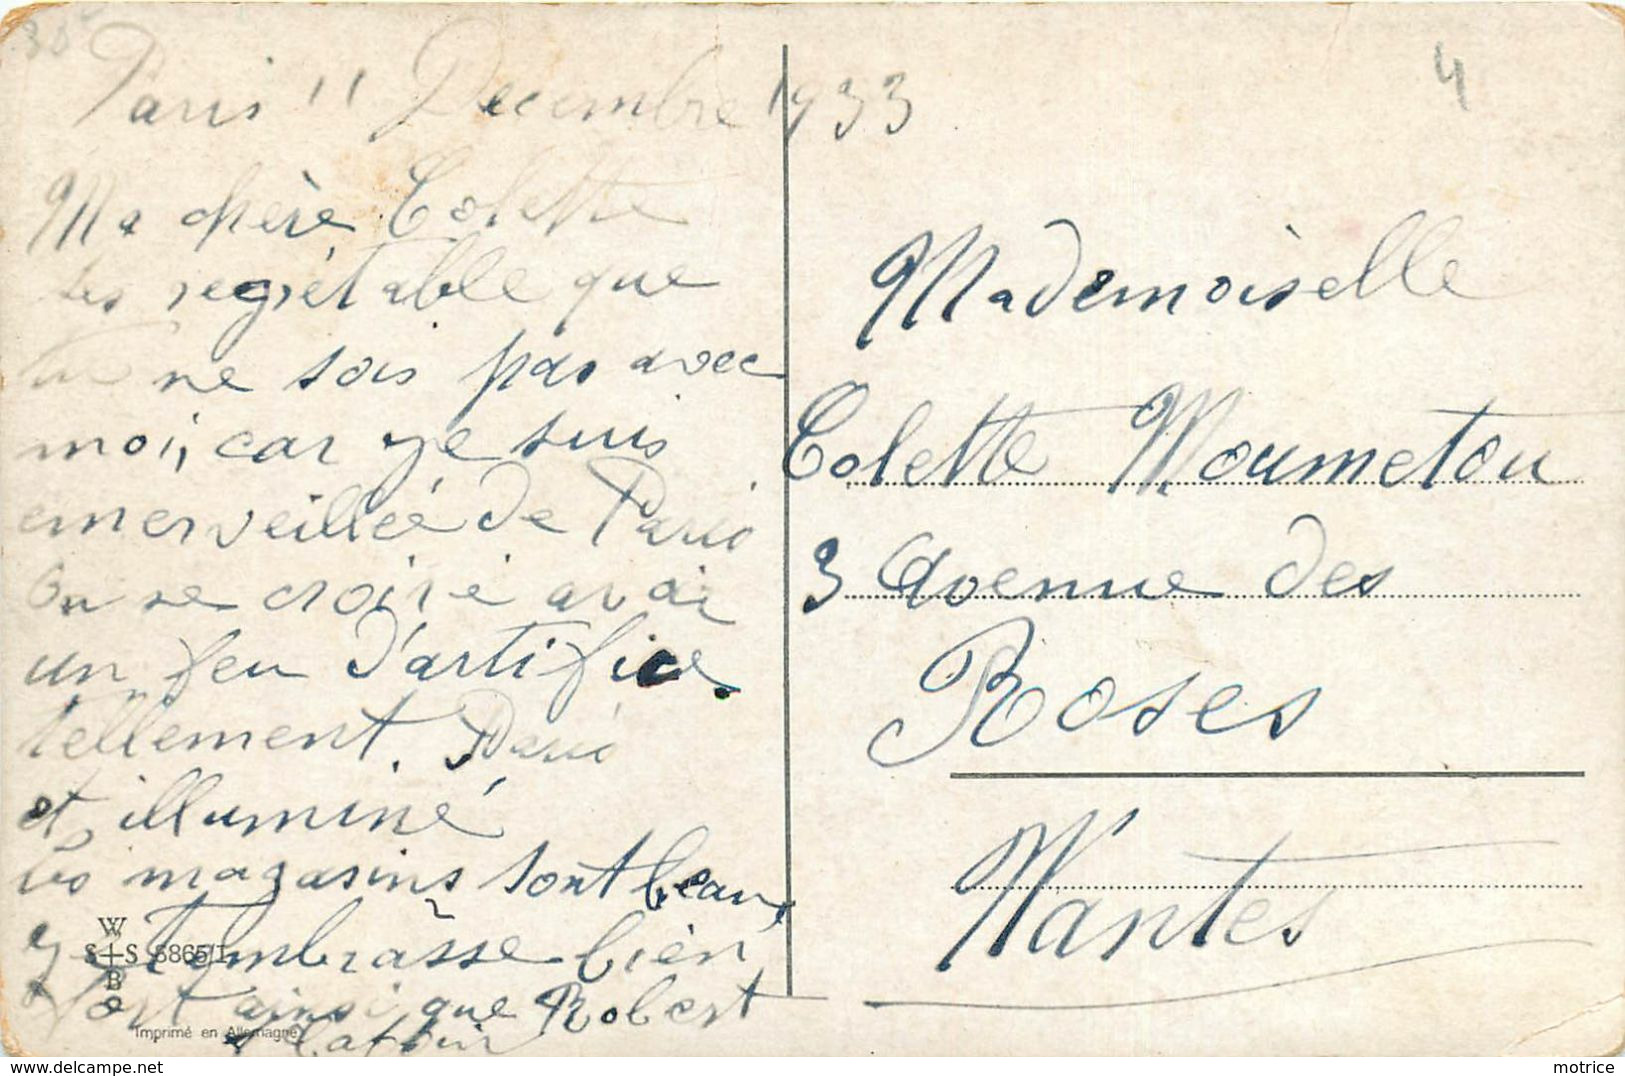 30
Paris 11 Decembre 1933
4
Ma chère Colette
tes regrétable que
tu ne sois pas avec
moi, car je suis
emerveillée de Paris
On se croire avoir
un feu d'artifice
tellement. Paris
et illuminé
les magasins sont beau,
je t'embrasse bien
fort ainsi que Robert
Mademoiselle
Colette Moumetou
3 Avenue des
Roses
Nantes
W
S+S 5865/I
B
Imprimé en Allemagne
motrice